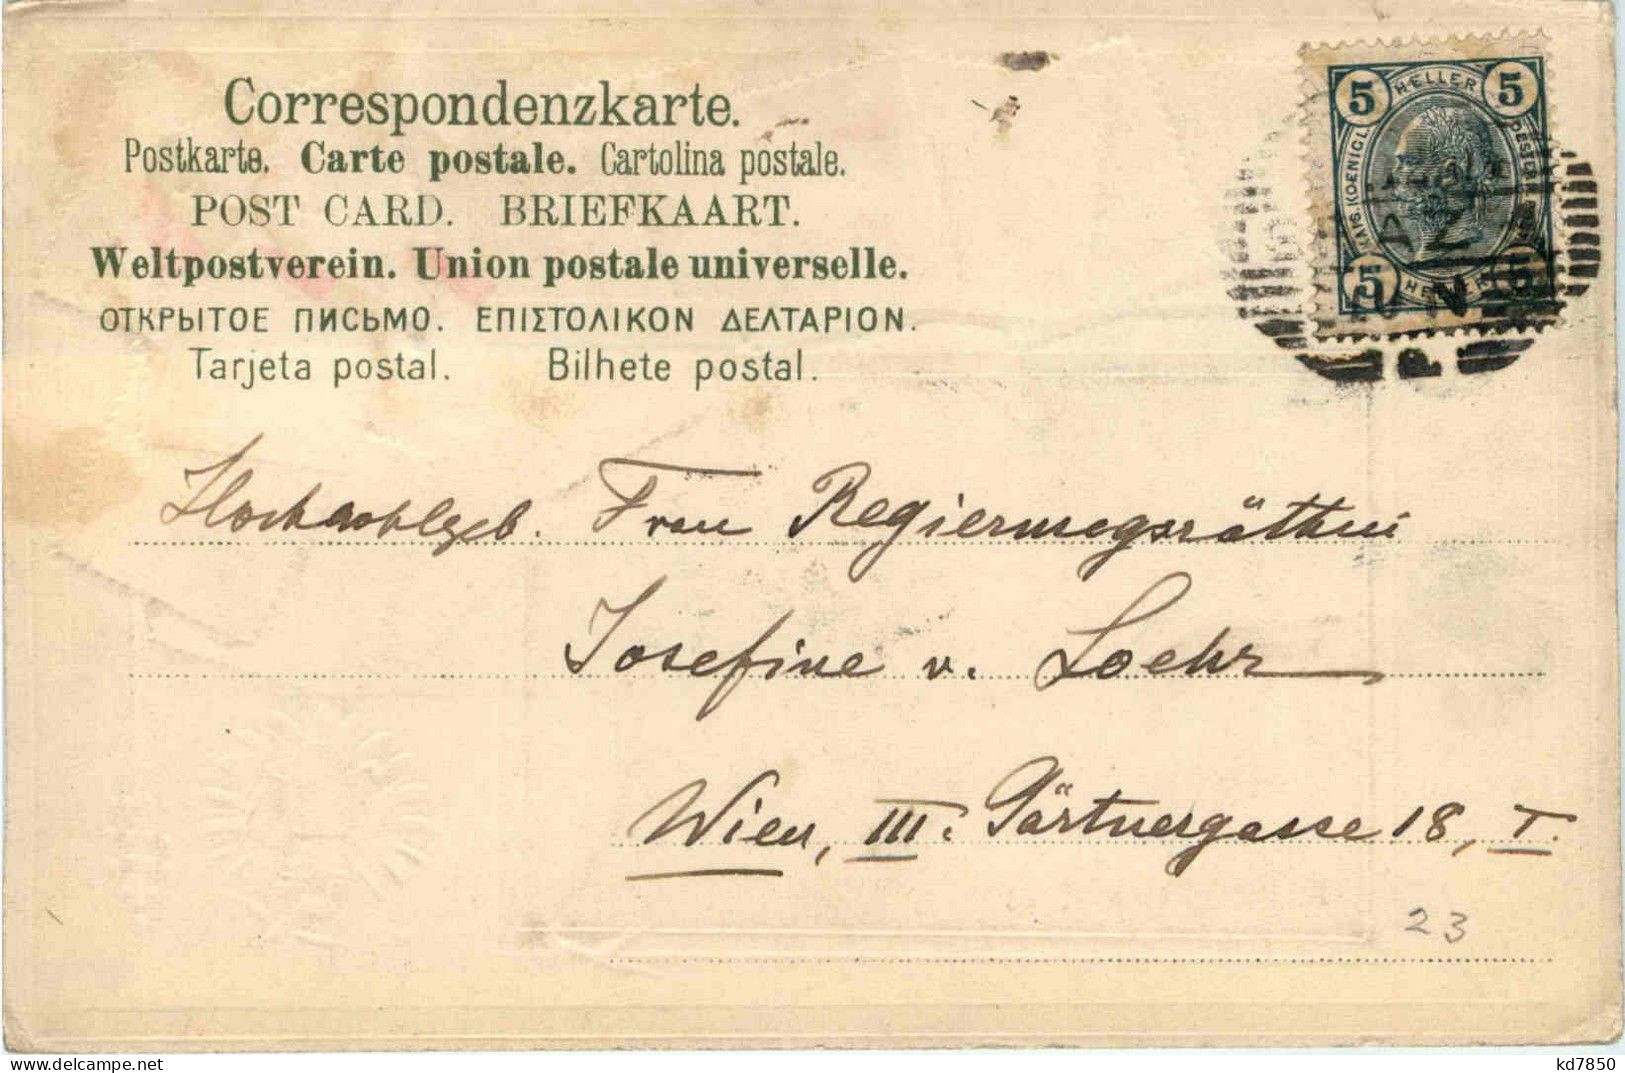 Correspondenzkarte.
Postkarte. Carte postale. Cartolina postale.
POST CARD. BRIEFKAART.
Weltpostverein. Union postale universelle.
ОТКРЫТОЕ ПИСЬМО. ΕΠΙΣΤΟΛΙΚΟΝ ΔΕΛΤΑΡΙΟΝ.
Tarjeta postal. Bilhete postal.
5 HELLER 5
KAIS. KOENIGL.
5 HELLER 5
Hochwohlgeb. Frau Regierungsräthin
Josefine v. Loehr
Wien, III. Gärtnergasse 18, I.
23
www.delcampe.net
kd7850